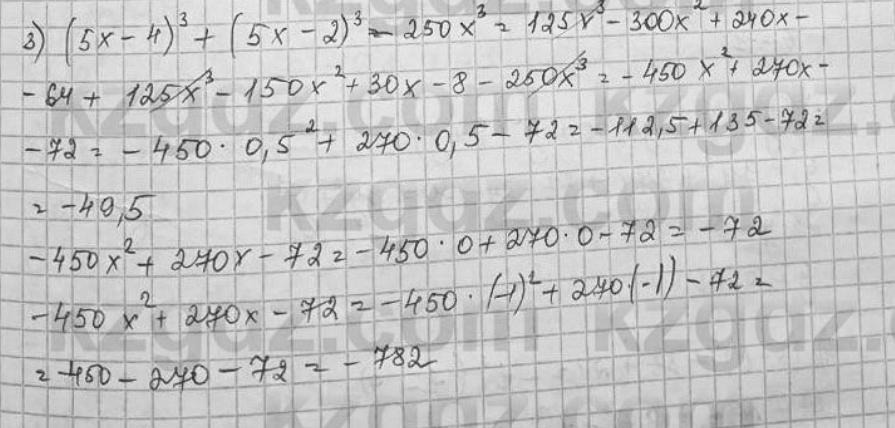 3) (5x - 4)³ + (5x - 2)³ - 250x³ = 125x³ - 300x² + 240x -
- 64 + 125x³ - 150x² + 30x - 8 - 250x³ = - 450x² + 270x -
- 72 = - 450 · 0,5² + 270 · 0,5 - 72 = - 112,5 + 135 - 72 =
= - 49,5
- 450x² + 270x - 72 = - 450 · 0 + 270 · 0 - 72 = - 72
- 450x² + 270x - 72 = - 450 · (-1)² + 270 · (-1) - 72 =
= - 450 - 270 - 72 = - 782
kzgdz.com